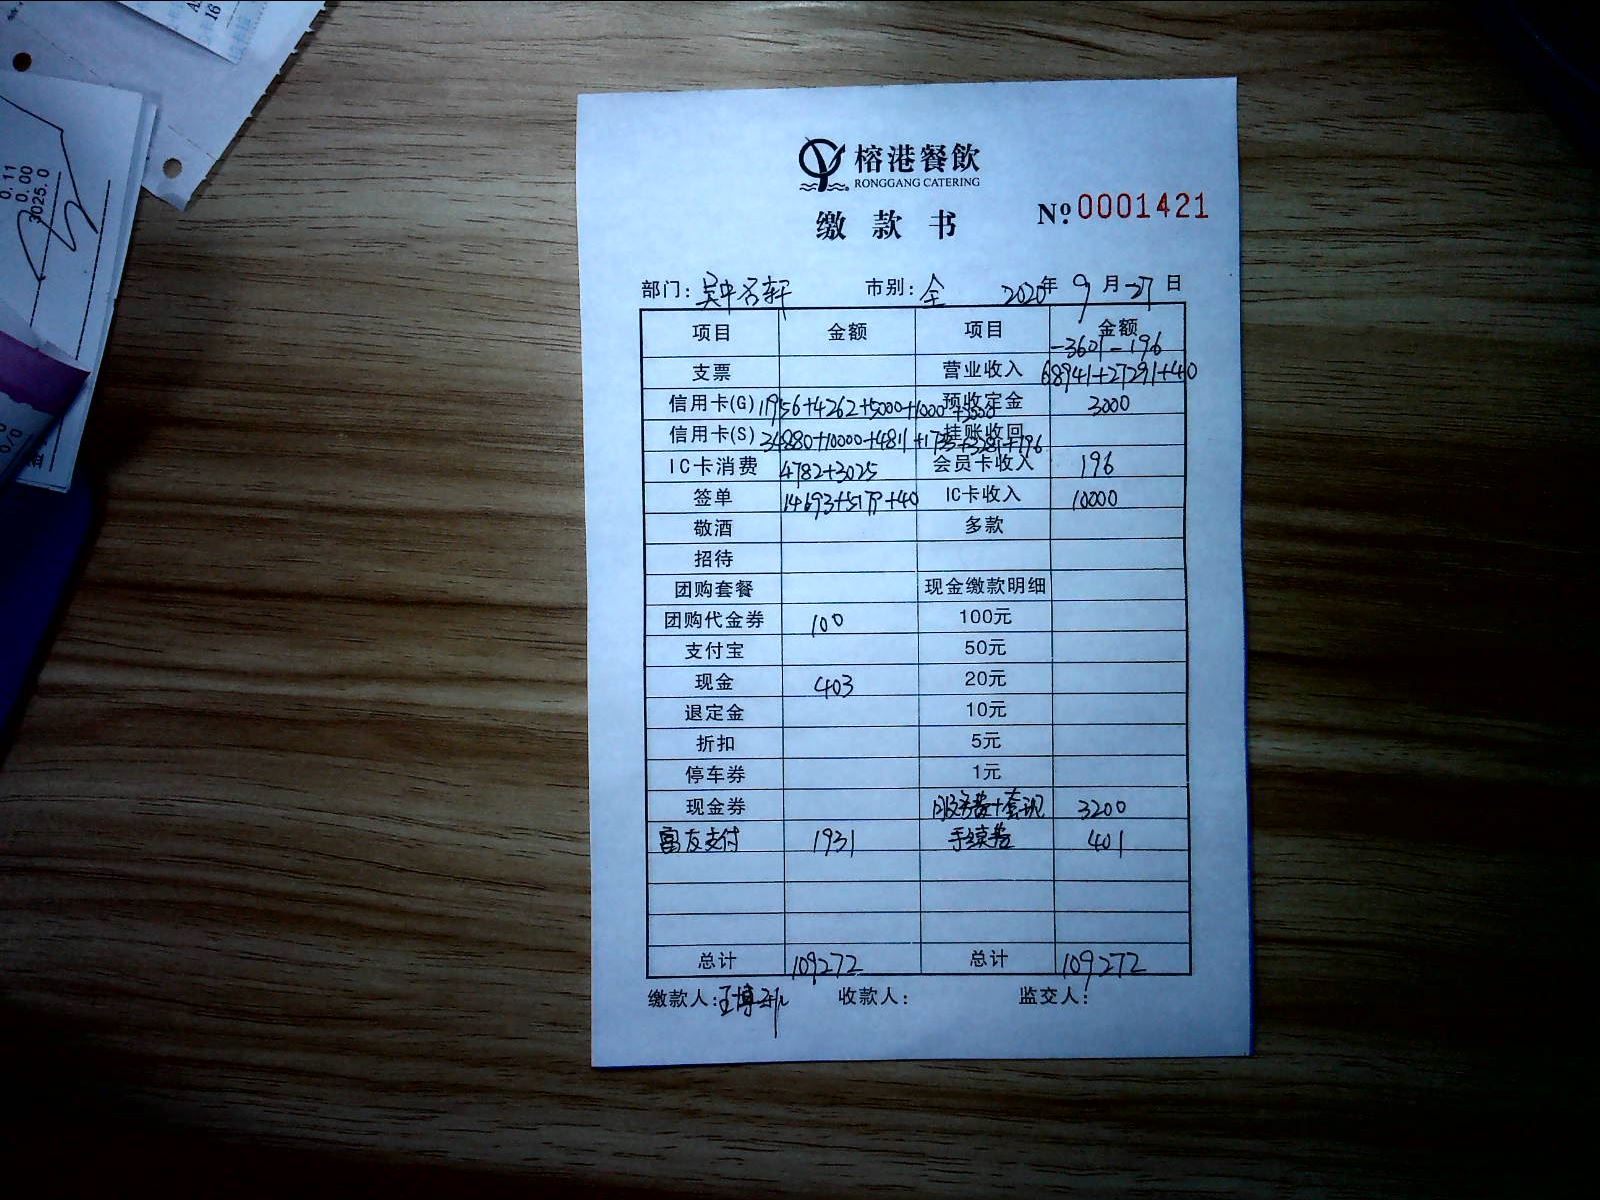 A
16
0.11
0.00
3025.0
榕港餐飲
RONGGANG CATERING
缴款书 №0001421
部门: 吴中名轩 市别: 全 2020年 9月 27日
项目 金额 项目 金额
-3601-196
支票 营业收入 68941+27291+40
信用卡(G) 11956+4262+5000+1000+3000 预收定金 3000
信用卡(S) 34880+10000+4811+1735+3281+196 挂账收回
IC卡消费 4782+3025 会员卡收入 196
签单 IC卡收入 10000
敬酒 多款
招待
团购套餐 现金缴款明细
团购代金券 100 100元
支付宝 50元
现金 403 20元
退定金 10元
折扣 5元
停车券 1元
现金券 服务费+套现 3200
富友支付 1931 手续费 401
总计 109272 总计 109272
缴款人: 收款人: 监交人: